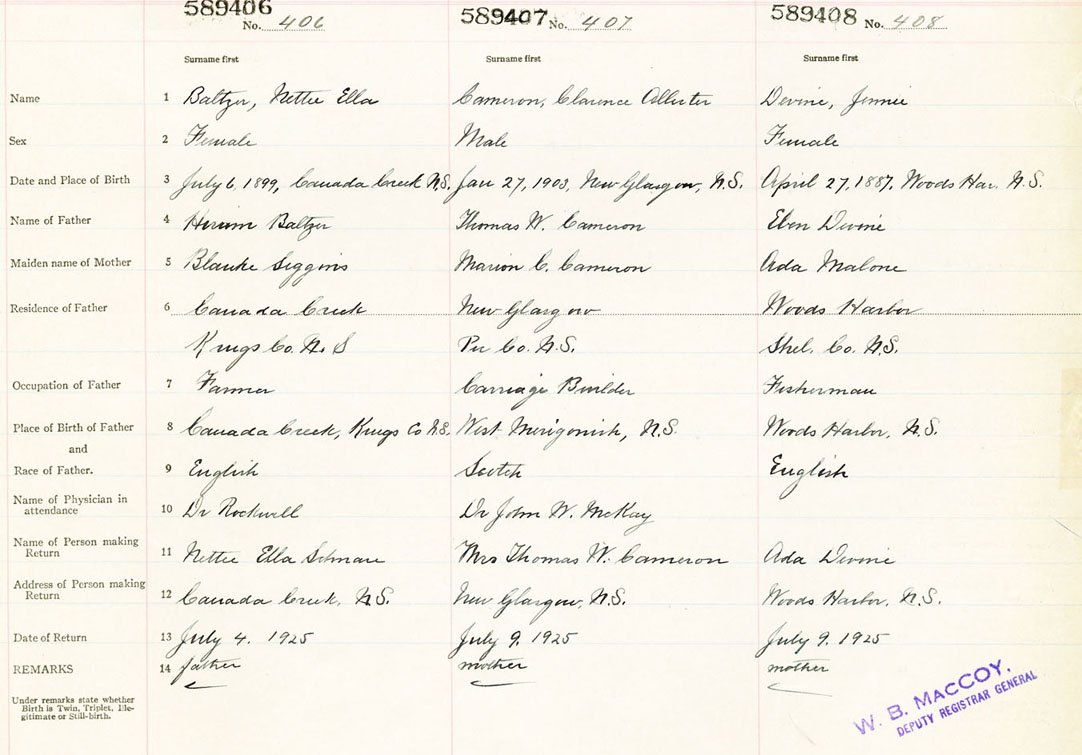 589406 No. 406 589407 No. 407 589408 No. 408
Surname first Surname first Surname first
Name 1 Baltzer, Nettie Ella Cameron, Clarence Allister Devine, Jennie
Sex 2 Female Male Female
Date and Place of Birth 3 July 6, 1899, Canada Creek N.S. Jan 27, 1903, New Glasgow, N.S. April 27, 1887, Woods Har. N.S.
Name of Father 4 Hiram Baltzer Thomas W. Cameron Eben Devine
Maiden name of Mother 5 Blanke Siggins Marion C. Cameron Ada Malone
Residence of Father 6 Canada Creek New Glasgow Woods Harbor
Kings Co. N.S Pic Co. N.S. Shel. Co. N.S.
Occupation of Father 7 Farmer Carriage Builder Fisherman
Place of Birth of Father 8 Canada Creek, Kings Co N.S. West Merigomish, N.S. Woods Harbor, N.S.
and
Race of Father. 9 English Scotch English
Name of Physician in
attendance 10 Dr Rockwell Dr John W. McKay
Name of Person making
Return 11 Nettie Ella Mrs Thomas W. Cameron Ada Devine
Address of Person making
Return 12 Canada Creek, N.S. New Glasgow, N.S. Woods Harbor, N.S.
Date of Return 13 July 4. 1925 July 9. 1925 July 9. 1925
REMARKS 14 father mother mother
Under remarks state whether
Birth is Twin, Triplet, Ille-
gitimate or Still-birth.
W. B. MACCOY,
DEPUTY REGISTRAR GENERAL